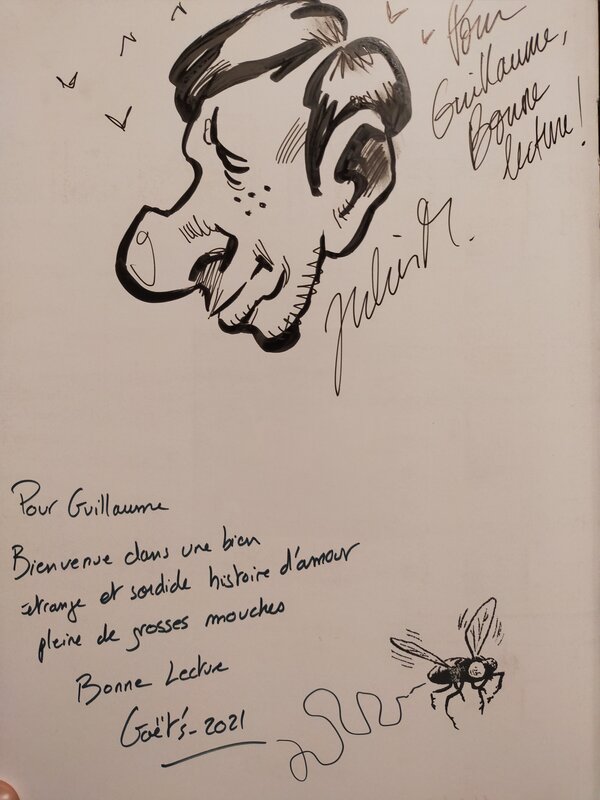 Pour
Guillaume,
Bonne
lecture!
Pour Guillaume
Bienvenue dans une bien
étrange et sordide histoire d'amour
pleine de grosses mouches
Bonne Lecture
Gaët's-2021